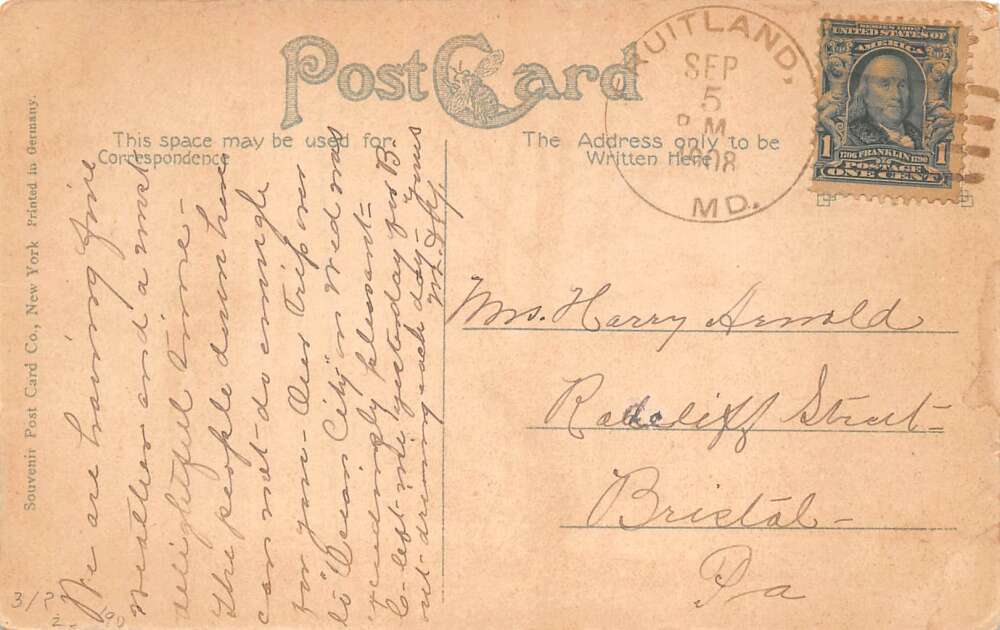 Post Card
This space may be used for
Correspondence
The Address only to be
Written Here
FRUITLAND,
SEP
5
PM
1908
MD.
SERIES 1902
UNITED STATES OF
AMERICA
1706 FRANKLIN 1790
1 POSTAGE 1
ONE CENT
Souvenir Post Card Co., New York Printed in Germany.
We are having fine
Weather and a most
delightful time -
the people down here
can not do enough
for you - Our Trip over
to Ocean City on Wed was
exceedingly pleasant -
yesterday for B.
out driving each day - Yours
Mrs. Harry Arnold
Radcliff Street -
Bristol -
Pa
3/2